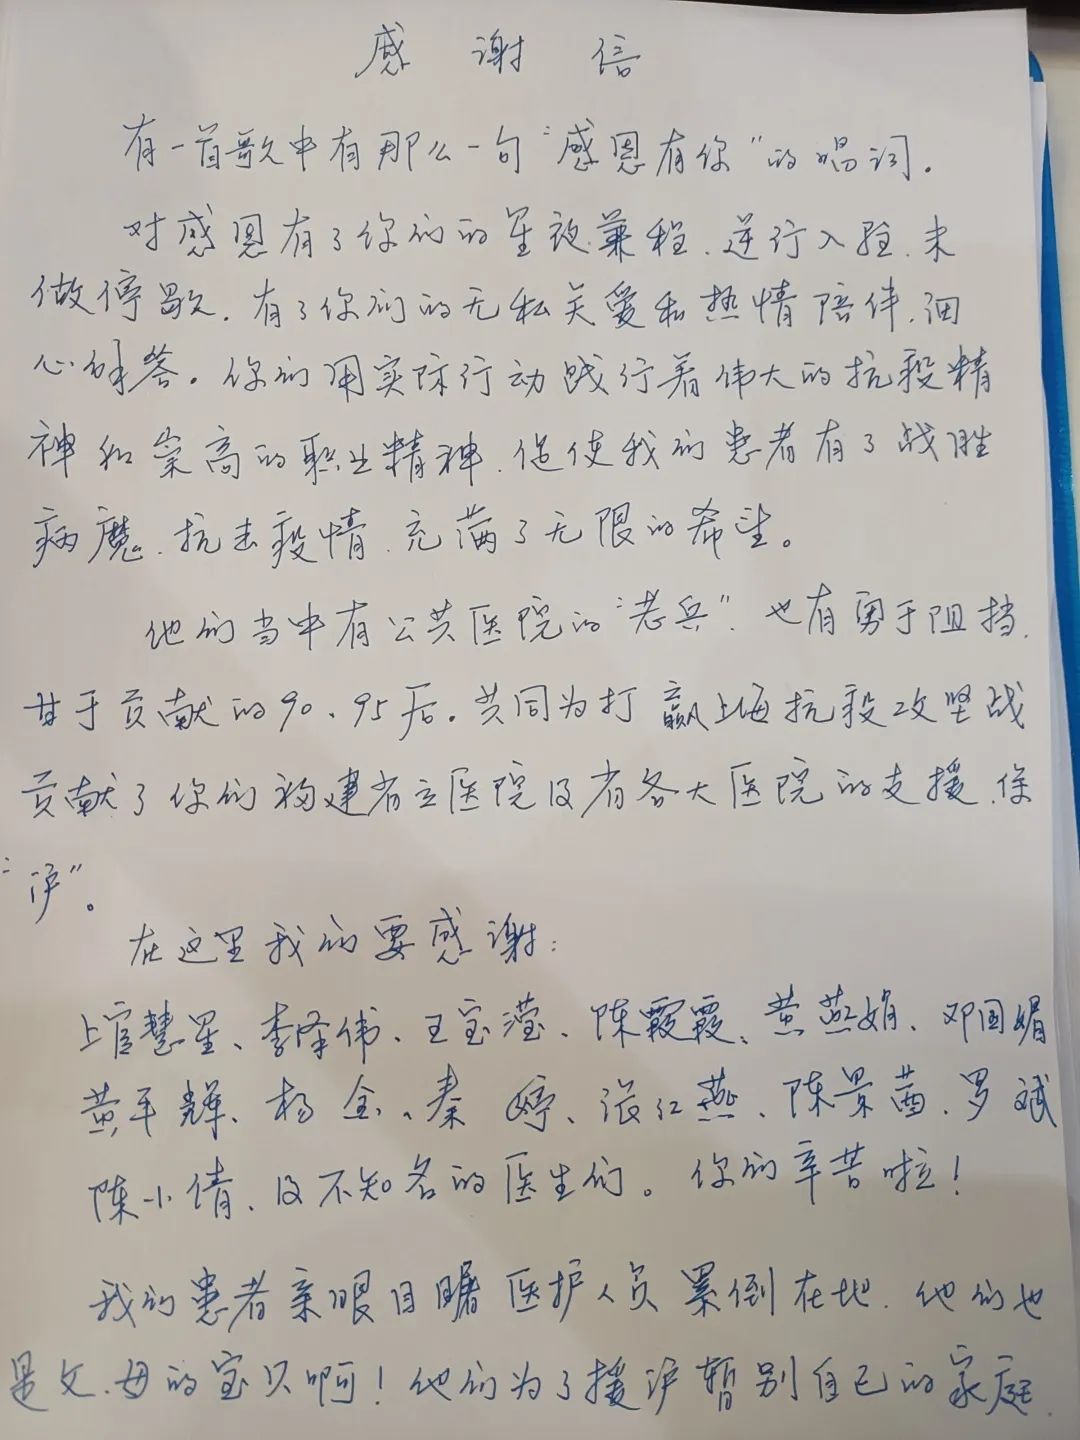 感谢信
有一首歌中有那么一句“感恩有你”的唱词。
对感恩有了你们的星夜兼程、逆行入驻、未
做停歇、有了你们的无私关爱和热情陪伴、细
心解答。你们用实际行动践行着伟大的抗疫精
神和崇高的职业精神、促使我们患者有了战胜
病魔、抗击疫情、充满了无限的希望。
他们当中有公共医院的“老兵”、也有勇于阻挡、
甘于贡献的90、95后。共同为打赢上海抗疫攻坚战
贡献了你们福建省立医院及省各大医院的支援、保
“沪”。
在这里我们要感谢：
上官慧星、李泽伟、王宝滢、陈霞霞、黄燕娟、邓国媚
黄平辉、杨金、秦婷、张红燕、陈景茜、罗斌
陈小倩、及不知名的医生们。你们辛苦啦！
我们患者亲眼目瞩医护人员累倒在地、他们也
是父、母的宝贝啊！他们为了援沪暂别自己的家庭、